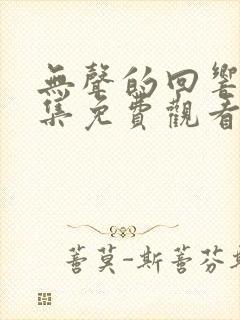 無聲的回響
集免費觀看
蓍莫-斯蓍芬斯